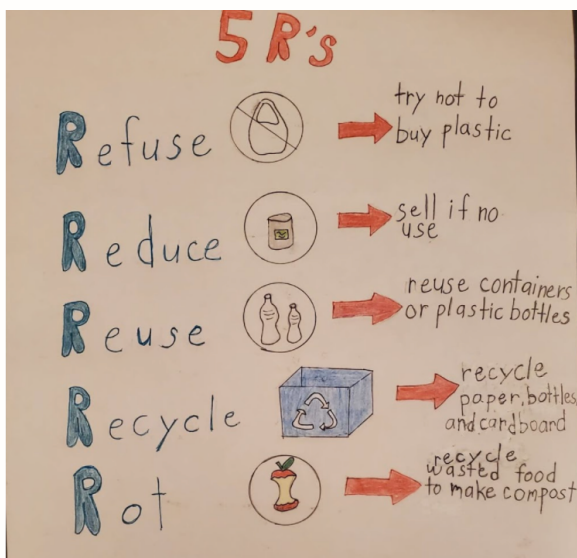 5 R's
Refuse
try not to
buy plastic
Reduce
sell if no
use
Reuse
reuse containers
or plastic bottles
Recycle
recycle
paper, bottles,
and cardboard
Rot
recycle
wasted food
to make compost